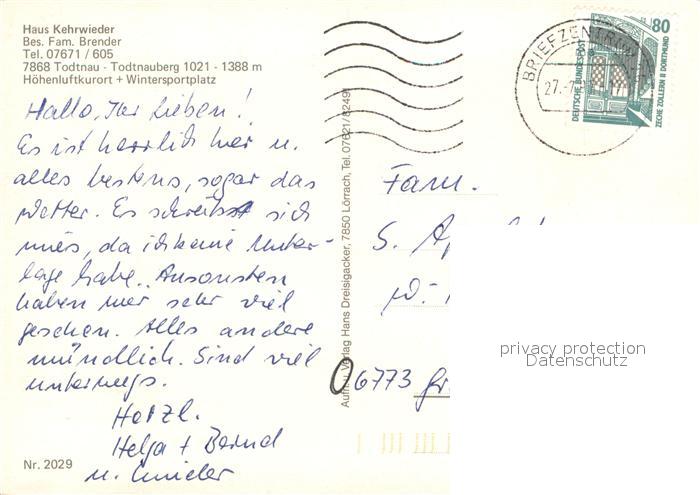 Haus Kehrwieder
Bes. Fam. Brender
Tel. 07671 / 605
7868 Todtnau - Todtnauberg 1021 - 1388 m
Höhenluftkurort + Wintersportplatz
Hallo, Ihr Lieben!
Es ist herrlich hier u.
alles bestens, sogar das
Wetter. Es schreibt sich
mies, da ich keine Unter-
lage habe. Ansonsten
haben wir sehr viel
gesehen. Alles andere
mündlich. Sind viel
unterwegs.
Herzl.
Helga + Bernd
u.
Nr. 2029
Aufn. u. Verlag Hans Dreisigacker, 7850 Lörrach, Tel. 07621/82491
BRIEFZENTRUM
27.-7.
80
DEUTSCHE BUNDESPOST
ZECHE ZOLLERN II DORTMUND
Fam.
S.
W-
06773
privacy protection
Datenschutz